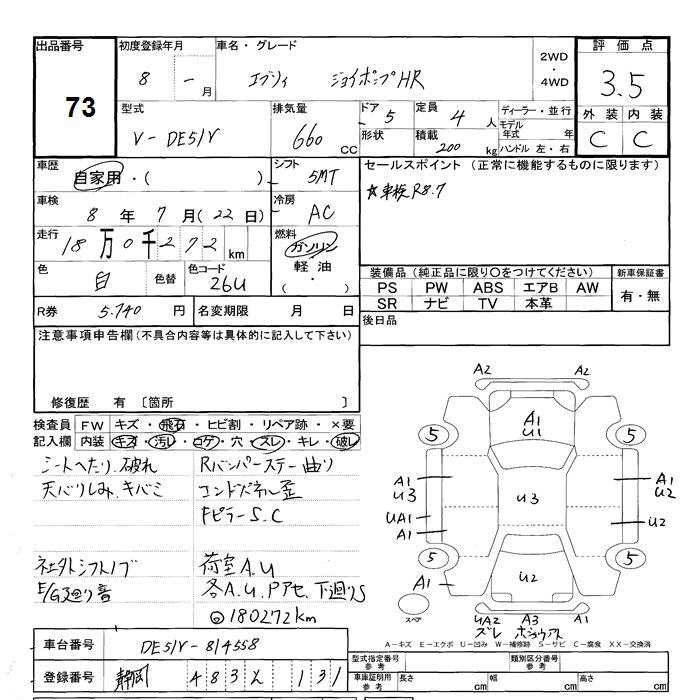 出品番号
73
初度登録年月
8 - 月
車名・グレード
エブリィ ジョイポップHR
2WD
・
4WD
評価点
3.5
外装 内装
C C
型式
V-DE51V
排気量
660 cc
ドア 5
形状
定員 4 人
積載 200 kg
ディーラー・並行
モデル年式 年
ハンドル 左・右
車歴
自家用・( )
シフト
5MT
車検
8 年 7 月 (22 日)
冷房
AC
走行
18 万 0 千 272 km
燃料
ガソリン
軽油
( ・ )
色
白
色替
色コード
26U
R券 5.740 円
名変期限 月 日
セールスポイント (正常に機能するものに限ります)
☆車検R8.7
装備品 (純正品に限り○をつけてください)
PS PW ABS エアB AW
SR ナビ TV 本革
新車保証書
有・無
後日品
注意事項申告欄(不具合内容等は具体的に記入して下さい)
修復歴 有 〔箇所 〕
検査員記入欄
FW キズ・飛石・ヒビ割・リペア跡・×要
内装 キズ・汚レ・コゲ・穴・スレ・キレ・破レ
シートへたり、破れ
天バリしみ、キバミ
社外シフトノブ
E/G廻り音
Rバンパーステー曲り
エンドパネル歪
FピラーS.C
荷室A.U
各A.U.Pアセ、下廻りS
◎180272km
車台番号 DE51V-814558
登録番号 静岡 483 131
A2 A2
A1
U1
5 5
A1
U3
U3
A1
U2
UA1
A1
U2
5 5
A1
U2
スペア
UA2 A3 A1
ズレ ホショウアト
A-キズ E-エクボ U-凹み W-補修跡 S-サビ C-腐食 XX-交換済
型式指定番号 参考
類別区分番号 参考
車庫証明用 参考
長さ cm
幅 cm
高さ cm